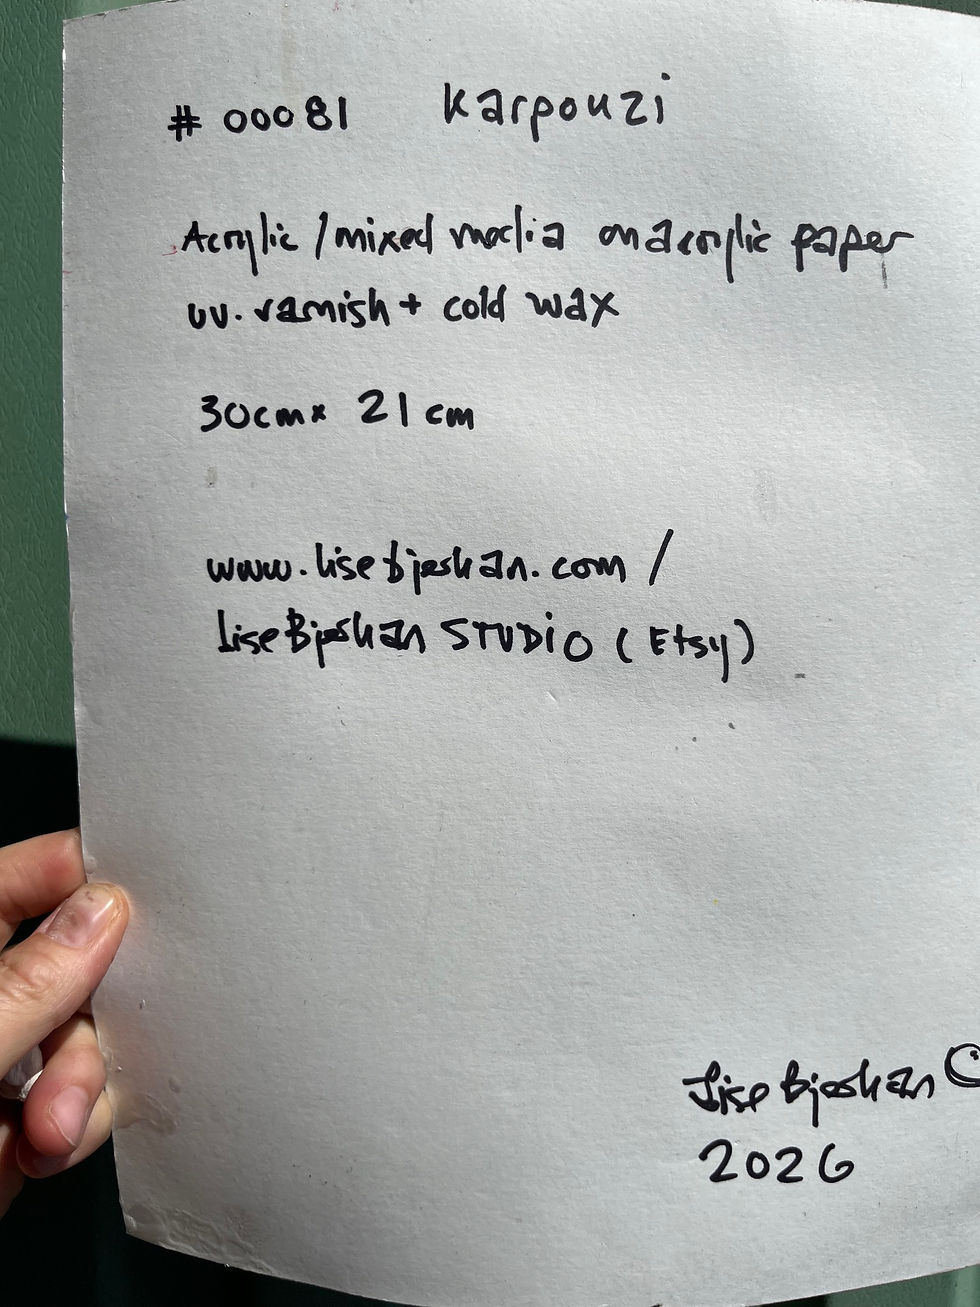 # 00081 Karpouzi
Acrylic / mixed media on acrylic paper
uv. varnish + cold wax
30cm x 21cm
www.lisebjeshan.com /
LiseBjeshan STUDIO (Etsy)
Lise Bjeshan ©
2026